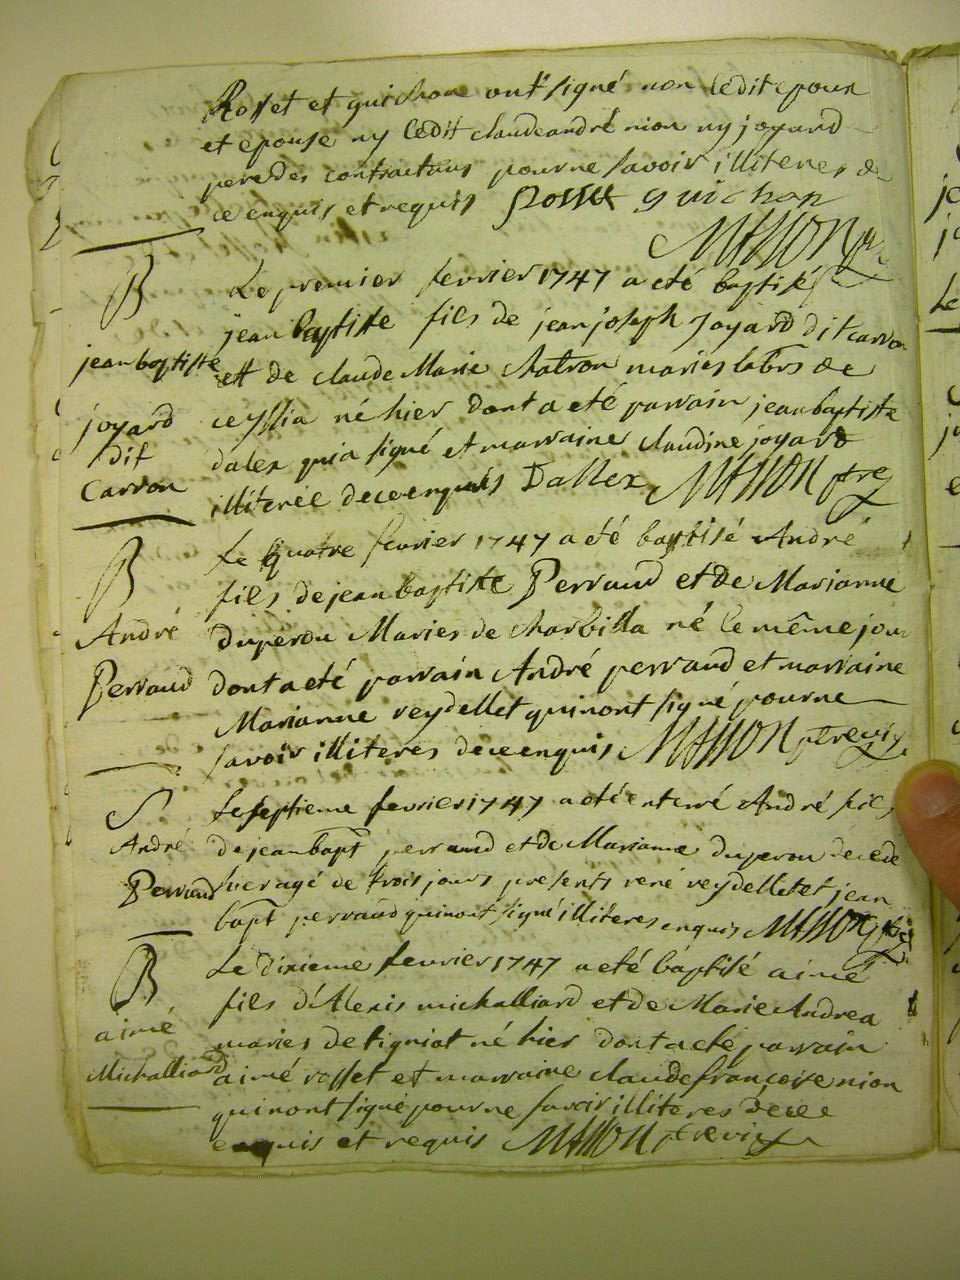 Rosset et guichon ont signé non ledit epoux
et epouse ny ledit claudeandré nion ny joyard
pere des contractans pour ne savoir illiteres de
ce enquis et requis Rosset guichon
Masson
B
Le premier fevrier 1747 a eté baptisé
jean baptiste fils de jean joseph Joyard dit carron
jean baptiste
et de claude Marie Chatron mariés labrs de
joyard
ceyssia né hier dont a eté parrain jean baptiste
dit
dalex qui a signé et marraine claudine joyard
Carron
illiterée de ce enquis Dallex Masson ptre
B
Le quatre fevrier 1747 a eté baptisé André
fils de jean baptiste Perraud et de Marianne
André
duperou Mariés de Charbilla né le même jour
Perraud
dont a eté parrain André perraud et marraine
Marianne reydellet qui n'ont signé pour ne
savoir illiteres de ce enquis Masson ptre vic
S
Le septieme fevrier 1747 a eté enterré André fils
André
de jean bapt perraud et de Marianne duperou decedé
Perraud
hier agé de trois jours presents rené reydellet et jean
bapt perraud qui n'ont signé illiteres enquis Masson
B
Le dixieme fevrier 1747 a eté baptisé aimé
fils d'Alexis michalliard et de Marie Andrea
aimé
mariés de tigniat né hier dont a eté parrain
Michalliard
aimé rosset et marraine claude françoise nion
qui n'ont signé pour ne savoir illiteres de ce
enquis et requis Masson ptre vic